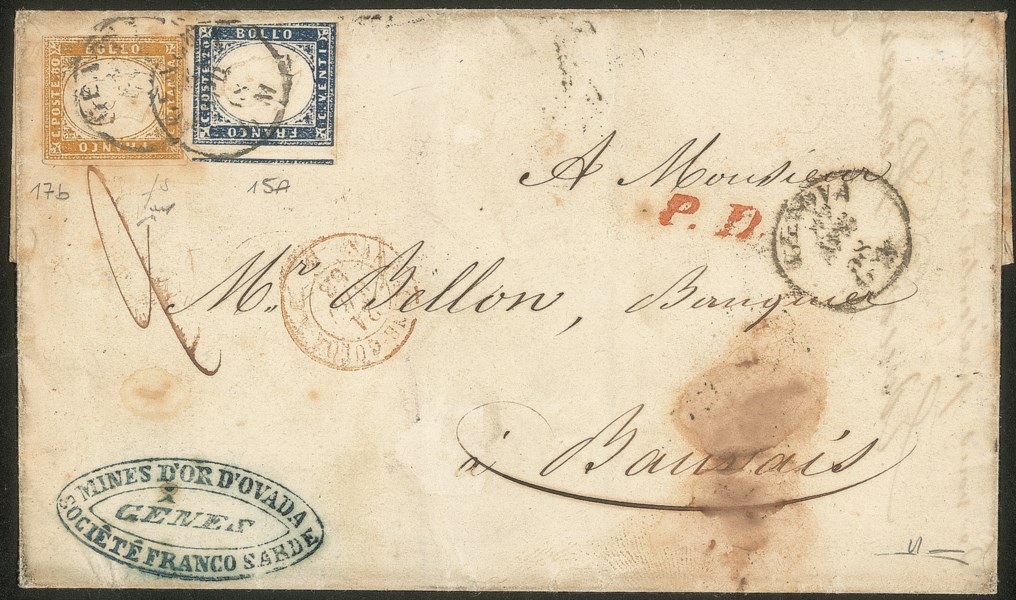 BOLLO
C. POSTE 20
C. VENTI
FRANCO
BOLLO
C. POSTE 80
FRANCO
17b
15A
A Monsieur
P. D.
GENOVA
Mr. Bellon, Banquier
à Bauvais
MINES D'OR D'OVADA
A
GENES
SOCIÉTÉ FRANCO SARDE